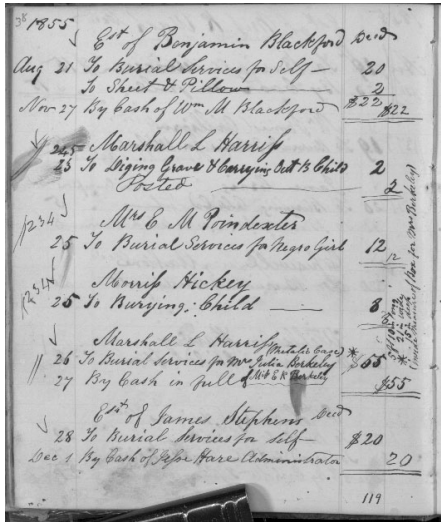 38 1855
Est of Benjamin Blackford Decd
Aug 21 To Burial Services for Self — 20
To Sheet & Pillow — 2
$22
Nov 27 By Cash of Wm M Blackford $22
245 Marshall L Harriss
23 To Diging Grave & Carrying Out B Child 2
Posted 2
1234 Mrs E M Poindexter
25 To Burial Services for Negro Girl 12
12
1234 Morriss Hickey
25 To Burying; Child — 8
8
Marshall L Harriss
(Metalic Case) *
26 To Burial Services for Mrs Julia Berkeley $55
27 By Cash in full of Mr E K Berkeley $55
5 ft 10 in long
* 21 in wide
15 in deep
(inside measure of Box for Mrs Berkeley)
Est of James Stephens Decd
28 To Burial Services for Self — $20
Dec 1 By Cash of Jesse Hare Administrator 20
119